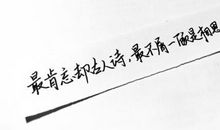 最肯忘却古人诗，最不屑一顾是相思